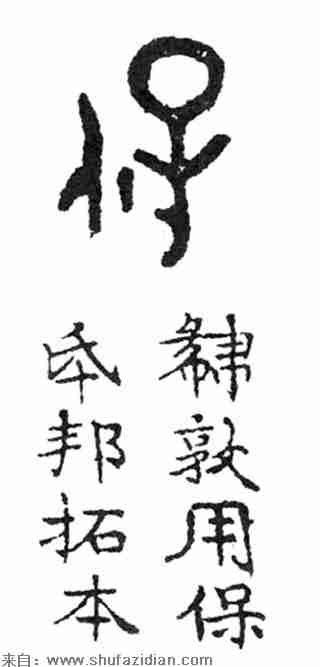 保
敦用保
氒邦拓本
来自：www.shufazidian.com